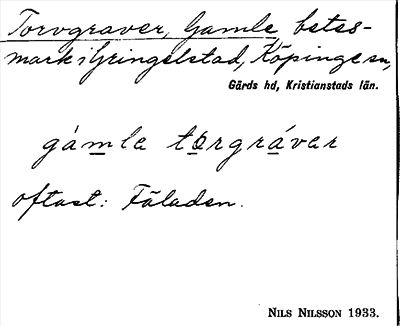 Torvgraver, Gamle, betes-
mark i Gringelstad, Köpinge sn,
Gärds hd, Kristianstads län.
gámla tǫrgrávar
oftast: Fäladen.
NILS NILSSON 1933.